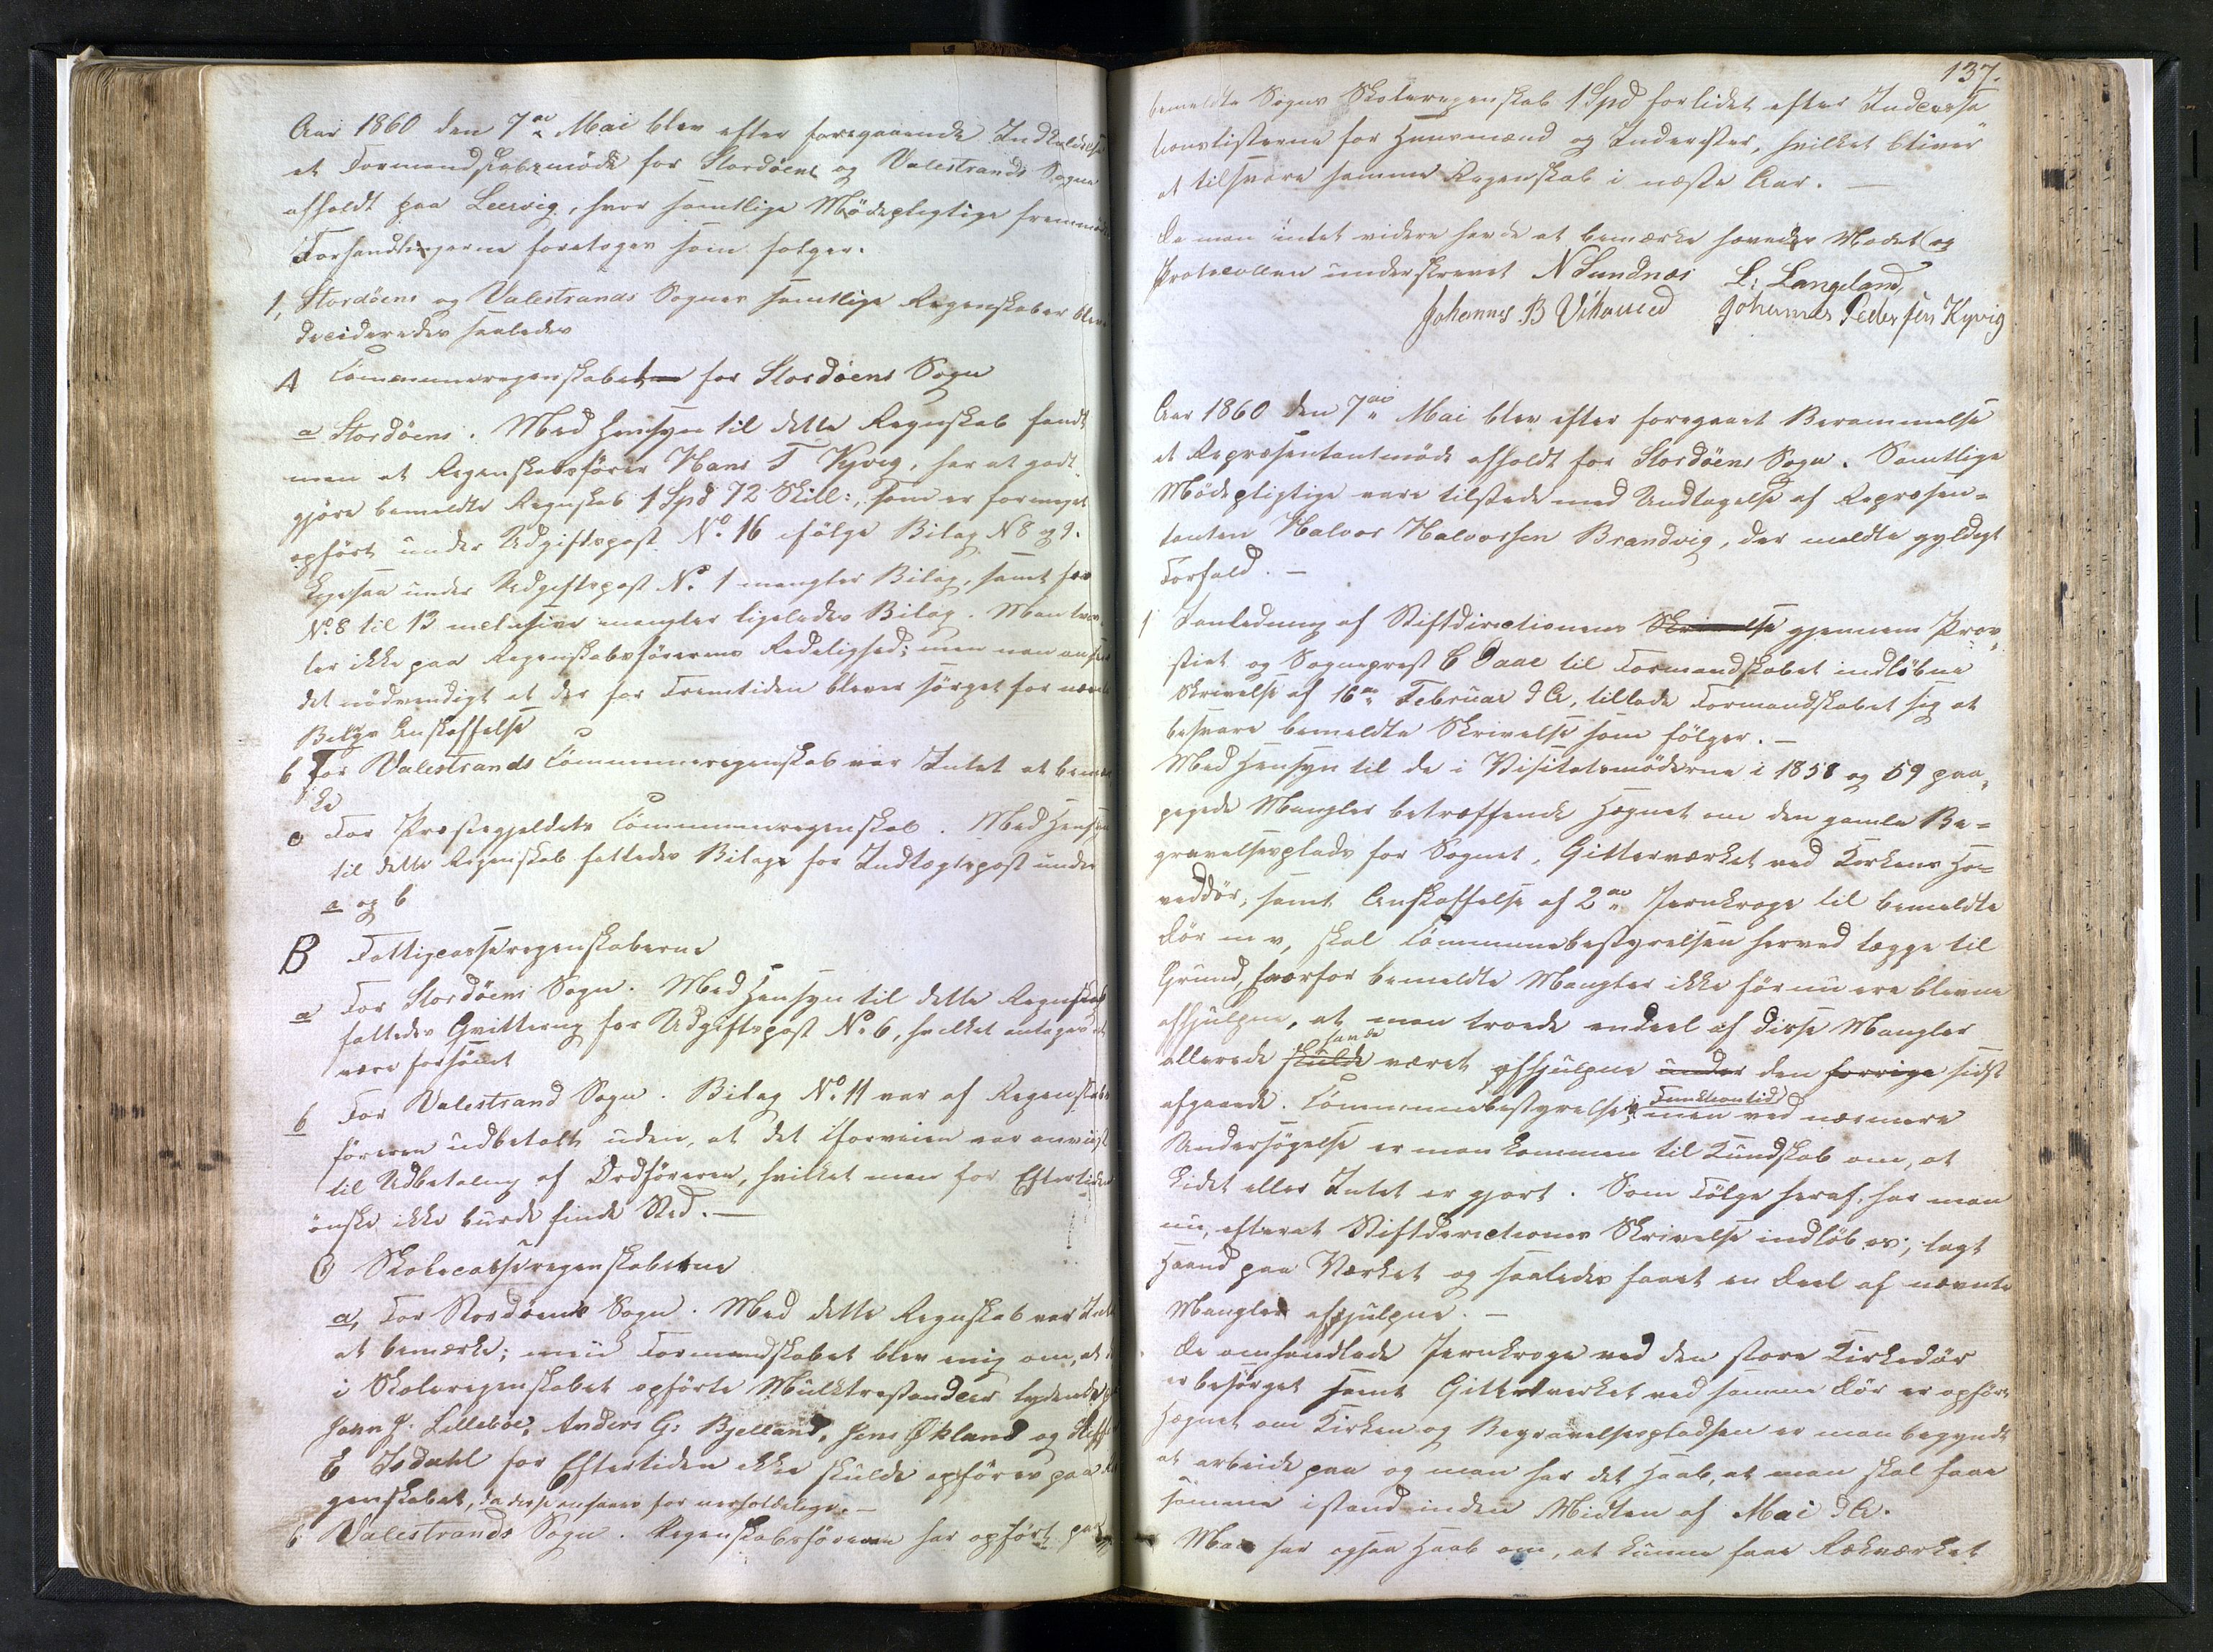 Aar 1860 den 7de Mai blev efter foregaaende Indkaldelse
et Formandskabsmöde for Stordöens og Valestrands Sogne
afholdt paa Leervig, hvor samtlige Mödepligtige fremmödte
Forhandlingerne foretoges som følger.
1, Stordöens og Valestrands Sognes samtlige Regenskaber blev
decideredes saaledes
A Communeregenskabet for Stordöens Sogn
a Stordöens. Med Hensyn til dette Regnskab fandt
man at Regenskabsförer Hans T Kyvig, har at godt
gjöre bemeldte Regnskab 1 Spd 72 Skill:, som er formeget
opfört under Udgiftspost No 16 ifölge Bilag N 8 og 9.
Ligesaa under Udgiftspost No 1 mangler Bilag, samt for
No 8 til 13 inclusive mangler ligeledes Bilag. Man tviv
ler ikke paa Regenskabsförerens Redelighed; men man anseer
det nödvendigt at der for Fremtiden bliver sörget for nævnte
Bilags Anskaffelse
b For Valestrands Communeregenskab var Intet at bemær
ke
c For Præstegjeldets Communeregenskab. Med Hensyn
til dette Regenskab fattedes Bilage for Indtægtspost under
a og b
B Fattigcasseregenskaberne
a For Stordöens Sogn. Med Hensyn til dette Regnskab
fattedes Qvittering for Udgiftspost No 6, hvilket antages at
være forsömt
b For Valestrand Sogn. Bilag No 11 var af Regenskabs
föreren udbetalt uden, at det iforveien var anviist
til Udbetaling af Ordföreren, hvilket man for Eftertiden
önske ikke burde finde Sted. —
C Skolecasseregenskaberne
a, For Stordöens Sogn. Med dette Regnskab var Intet
at bemærke; men Formandskabet blev enig om, at de
i Skoleregenskabet opförte Mulktrestancer lydende paa
John J. Lilleböe, Anders G: Bjelland, Jens Økland og
E Isdahl for Eftertiden ikke skulde opföres paa Re
genskabet, da disse ansees for uerholdelige. —
b Valestrands Sogn. Regenskabsföreren har opfört paa
137.
bemeldte Sogns Skoleregenskab 1 Spd forlidet efter Indcassa
tionslisterne for Huusmænd og Inderster, hvilket bliver
at tilsvare samme Regenskab i næste Aar. —
Da man intet videre havde at bemærke hævedes Mödet og
Protocollen underskrevet N Sundnæs L: Langeland,
Johannes B Vihoved Johannes Pedersen Kyvig
Aar 1860 den 7de Mai blev efter foregaaet Berammelse
et Repræsentantmöde afholdt for Stordöens Sogn. Samtlige
Mödepligtige vare tilstede med Undtagelse af Repræsen=
tanten Halvor Halvorsen Brandvig, der meldte gyldigt
Forfald. —
1 I anledning af Stiftdirectionens Skrivelse gjennem Prov
stiet og Sognepræst C Daae til Formandskabet indløbne
Skrivelse af 16de Februar d A, tillade Formandskabet sig at
besvare bemeldte Skrivelse som fölger. —
Med Hensyn til de i Visitatsmöderne i 1858 og 59 paa=
pegede Mangler betræffende Hægnet om den gamle Be=
gravelsesplads for Sognet, Gitterværket ved Kirkens Ho=
veddör, samt Anskaffelse af 2de Jernkroge til bemeldte
Dör m v, skal Communebestyrelsen herved lægge til
Grund, hvorfor bemeldte Mangler ikke för nu ere blevne
afhjulpne, at man troede endeel af disse Mangler
allerede skulde havde været afhjulpne under den forrige sidst
afgaaede. Communebestyrelses Funktionstid men ved nærmere
Undersögelse er man kommen til Kundskab om, at
Lidet eller Intet er gjort. Som Fölge heraf, har man
nu, efterat Stiftdirectionens Skrivelse indlöb os, lagt
Haand paa Værket og saaledes faaet en Deel af nævnte
Mangler afhjulpne. —
De omhandlede Jernkroge ved den store Kirkedör
er besörget samt Gitterverket ved samme Dör er opfört
Hægnet om Kirken og Begravelsespladsen er man begyndt
at arbeide paa og man har det Haab, at man skal faae
samme istand inden Midten af Mai d A.
Man har ogsaa Haab om, at kunne faae Rækværket